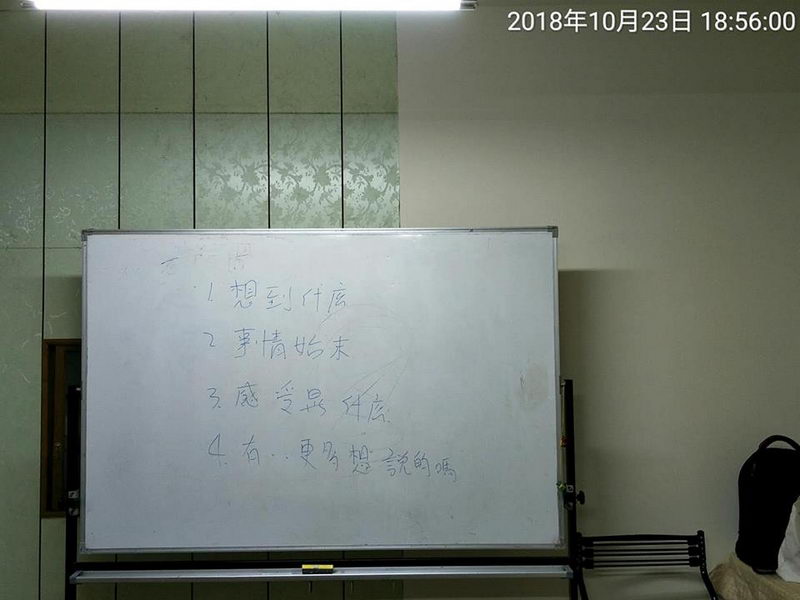 2018年10月23日 18:56:00
1. 想到什広
2. 事情始末
3. 感受是什広
4. 有..更多想說的嗎